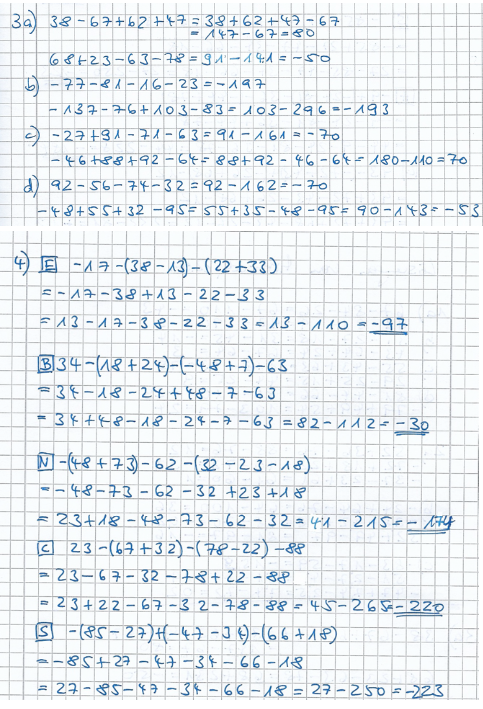 3a) 38-67+62+47=38+62+47-67
=147-67=80
68+23-63-78=91-141=-50
b) -77-81-16-23=-197
-137-76+103-83=103-296=-193
c) -27+91-71-63=91-161=-70
-46+88+92-64=88+92-46-64=180-110=70
d) 92-56-74-32=92-162=-70
-48+55+32-95=55+35-48-95=90-143=-53
4) E -17-(38-13)-(22+33)
=-17-38+13-22-33
=13-17-38-22-33=13-110=-97
B 34-(18+24)-(-48+7)-63
=34-18-24+48-7-63
=34+48-18-24-7-63=82-112=-30
N -(48+73)-62-(32-23-18)
=-48-73-62-32+23+18
=23+18-48-73-62-32=41-215=-174
C 23-(67+32)-(78-22)-88
=23-67-32-78+22-88
=23+22-67-32-78-88=45-265=-220
S -(85-27)+(-47-34)-(66+18)
=-85+27-47-34-66-18
=27-85-47-34-66-18=27-250=-223